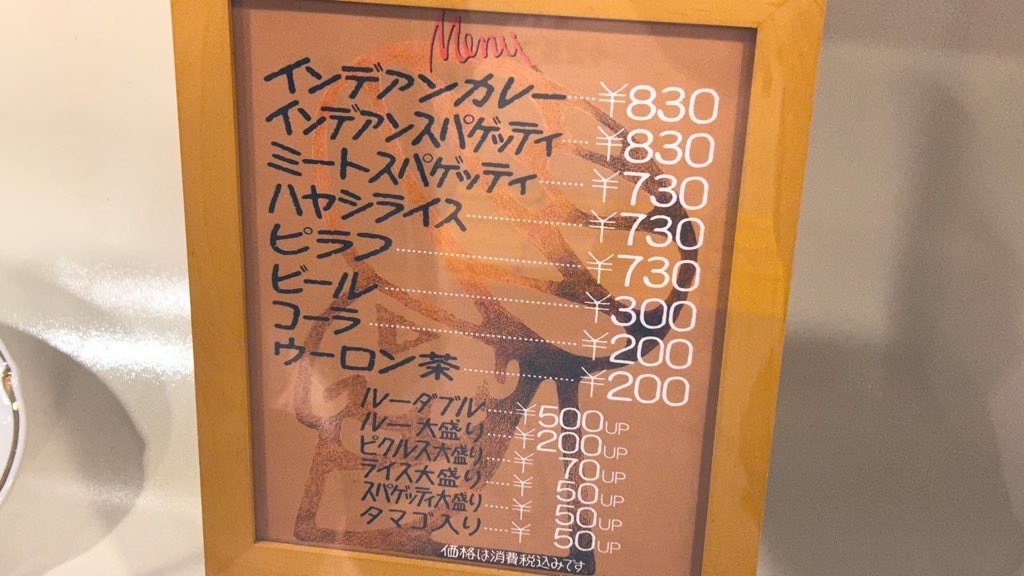 Menu
インデアンカレー ¥830
インデアンスパゲッティ ¥830
ミートスパゲッティ ¥730
ハヤシライス ¥730
ピラフ ¥730
ビール ¥300
コーラ ¥200
ウーロン茶 ¥200
ルーダブル ¥500UP
ルー大盛り ¥200UP
ピクルス大盛り ¥70UP
ライス大盛り ¥50UP
スパゲッティ大盛り ¥50UP
タマゴ入り ¥50UP
価格は消費税込みです